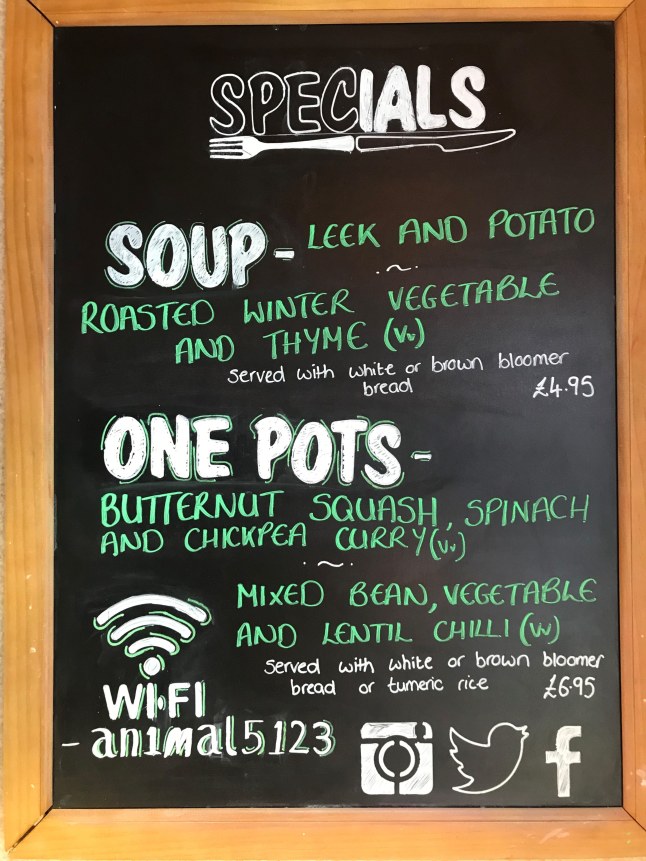 SPECIALS
SOUP - LEEK AND POTATO
~
ROASTED WINTER VEGETABLE
AND THYME (Vv)
Served with white or brown bloomer
bread £4.95
ONE POTS -
BUTTERNUT SQUASH, SPINACH
AND CHICKPEA CURRY (Vv)
~
MIXED BEAN, VEGETABLE
AND LENTIL CHILLI (Vv)
Served with white or brown bloomer
bread or tumeric rice £6.95
WI·FI
- animal5123